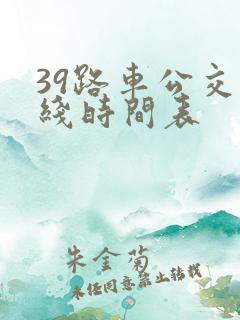 39路車公交
綫時間表
朱金菊
未经同意禁止转载